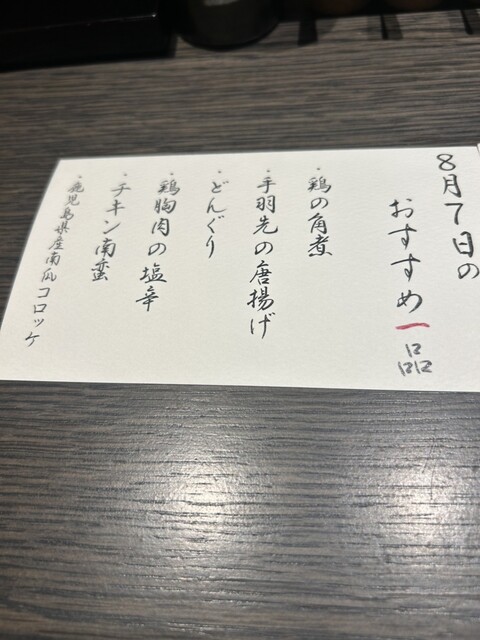 8月7日の
おすすめ一品
・鶏の角煮
・手羽先の唐揚げ
・どんぐり
・鶏胸肉の塩辛
・チキン南蛮
・鹿児島県産南瓜コロッケ